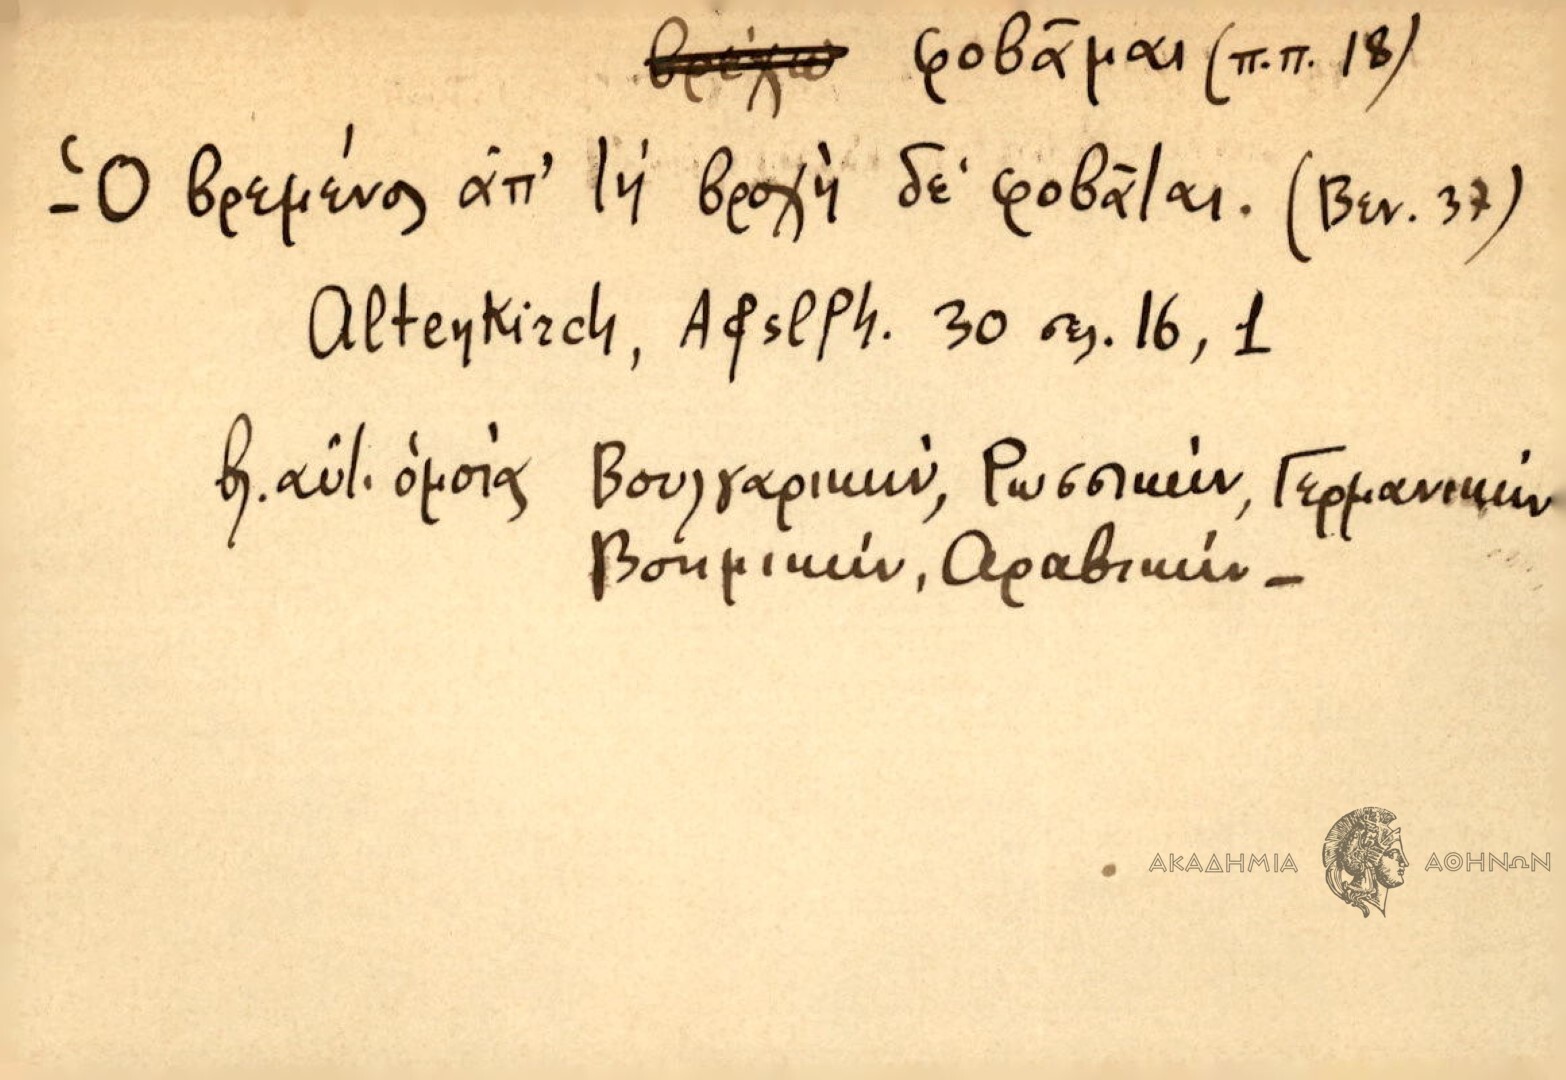 βρέχω φοβᾶμαι (π.π. 18)
- Ὁ βρεμένος ἀπ' τὴ βροχὴ δὲ φοβᾶται. (Βεν. 37)
Altenkirch, Afslph. 30 σελ. 16, 1
βλ. αὐτ. ὁμοίας Βουλγαρικήν, Ρωσσικήν, Γερμανικήν
Βοημικήν, Αραβικήν -
ΑΚΑΔΗΜΙΑ ΑΘΗΝΩΝ